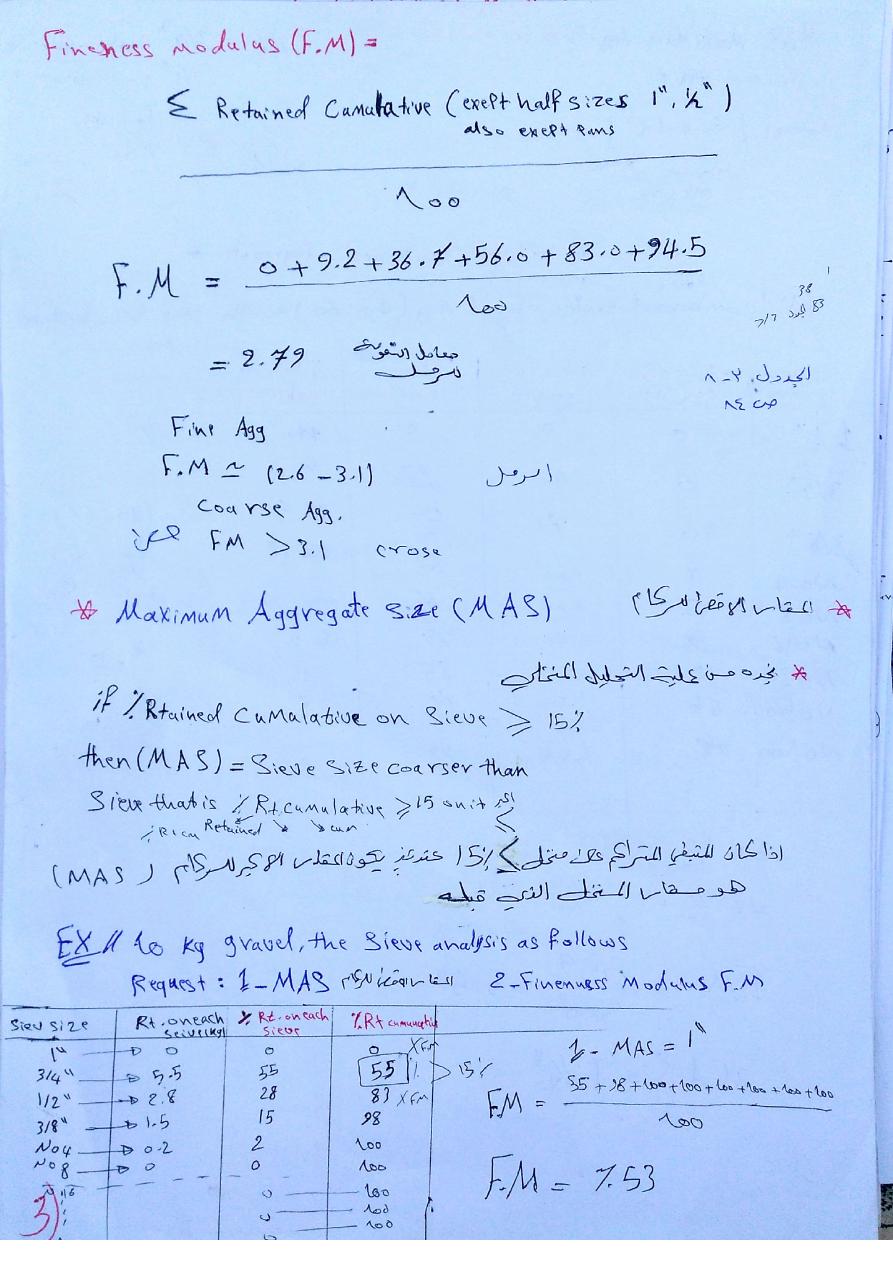 Fineness modulus (F.M) =
Σ Retained Cumulative (exept half sizes 1", ½")
also exept Pans
100
F.M = 0 + 9.2 + 36.7 + 56.0 + 83.0 + 94.5
100
38
83
= 2.79 معامل النعومة
للرمل
الجدول ٣-٨
ص ٨٤
Fine Agg
F.M ≃ (2.6 – 3.1) الرمل
Coarse Agg.
FM > 3.1 crose
* Maximum Aggregate Size (MAS) المقاس الاقصى للركام *
* نجده من عملية التحليل المنخلي
if % Rtained Cumalative on Sieve ≥ 15%
then (MAS) = Sieve Size coarser than
Sieve that is % Rt cumulative ≥ 15
Retained
اذا كان المتبقي المتراكم على منخل ≥ 15% عندئذ يكون المقاس الاكبر للركام (MAS)
هو مقاس المنخل الذي قبله
EX // 10 kg gravel, the Sieve analysis as follows
Request : 1 – MAS المقاس الاقصى للركام 2 – Finenuss Modulus F.M
Sieu size Rt. on each seive (kg) % Rt. on each sieve % Rt cumunative
1" 0 0 0 X FM
3/4" 5.5 55 55 % > 15%
1/2" 2.8 28 83 X FM
3/8" 1.5 15 98
No 4 0.2 2 100
No 8 0 0 100
No 16 0 100
0 100
0 100
1 – MAS = 1"
F.M = 55 + 98 + 100 + 100 + 100 + 100 + 100 + 100
100
F.M = 7.53
3)